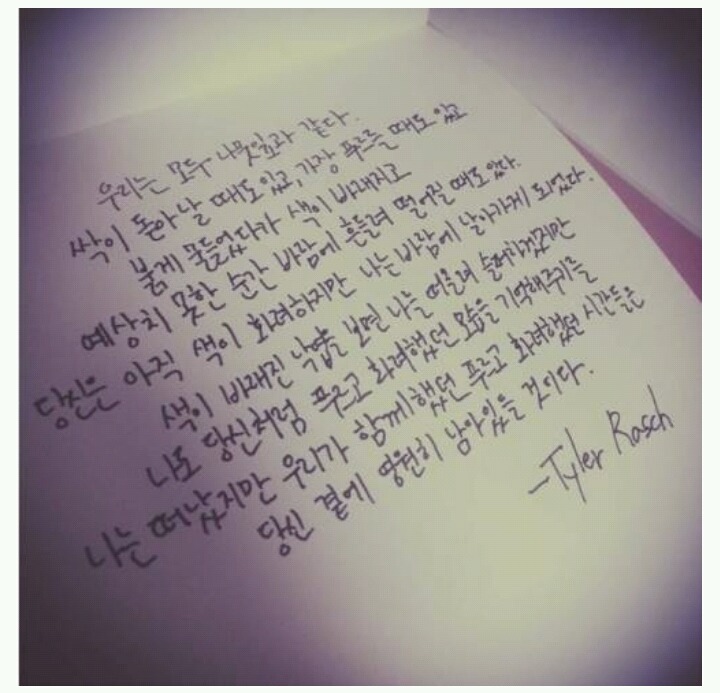 우리는 모두 나뭇잎과 같다.
싹이 돋아날 때도 있고, 가장 푸르를 때도 있고
붉게 물들었다가 색이 바래지고
예상치 못한 순간 바람에 흔들려 떨어질 때도 있다.
당신은 아직 색이 화려하지만 나는 바람에 날아가게 되었다.
색이 바래진 낙엽을 보면 나를 떠올려 슬퍼하겠지만
나도 당신처럼 푸르고 화려했던 모습을 기억해주기를
나는 떠났지만 우리가 함께했던 푸르고 화려했던 시간들은
당신 곁에 영원히 남아있을 것이다.
-Tyler Rasch